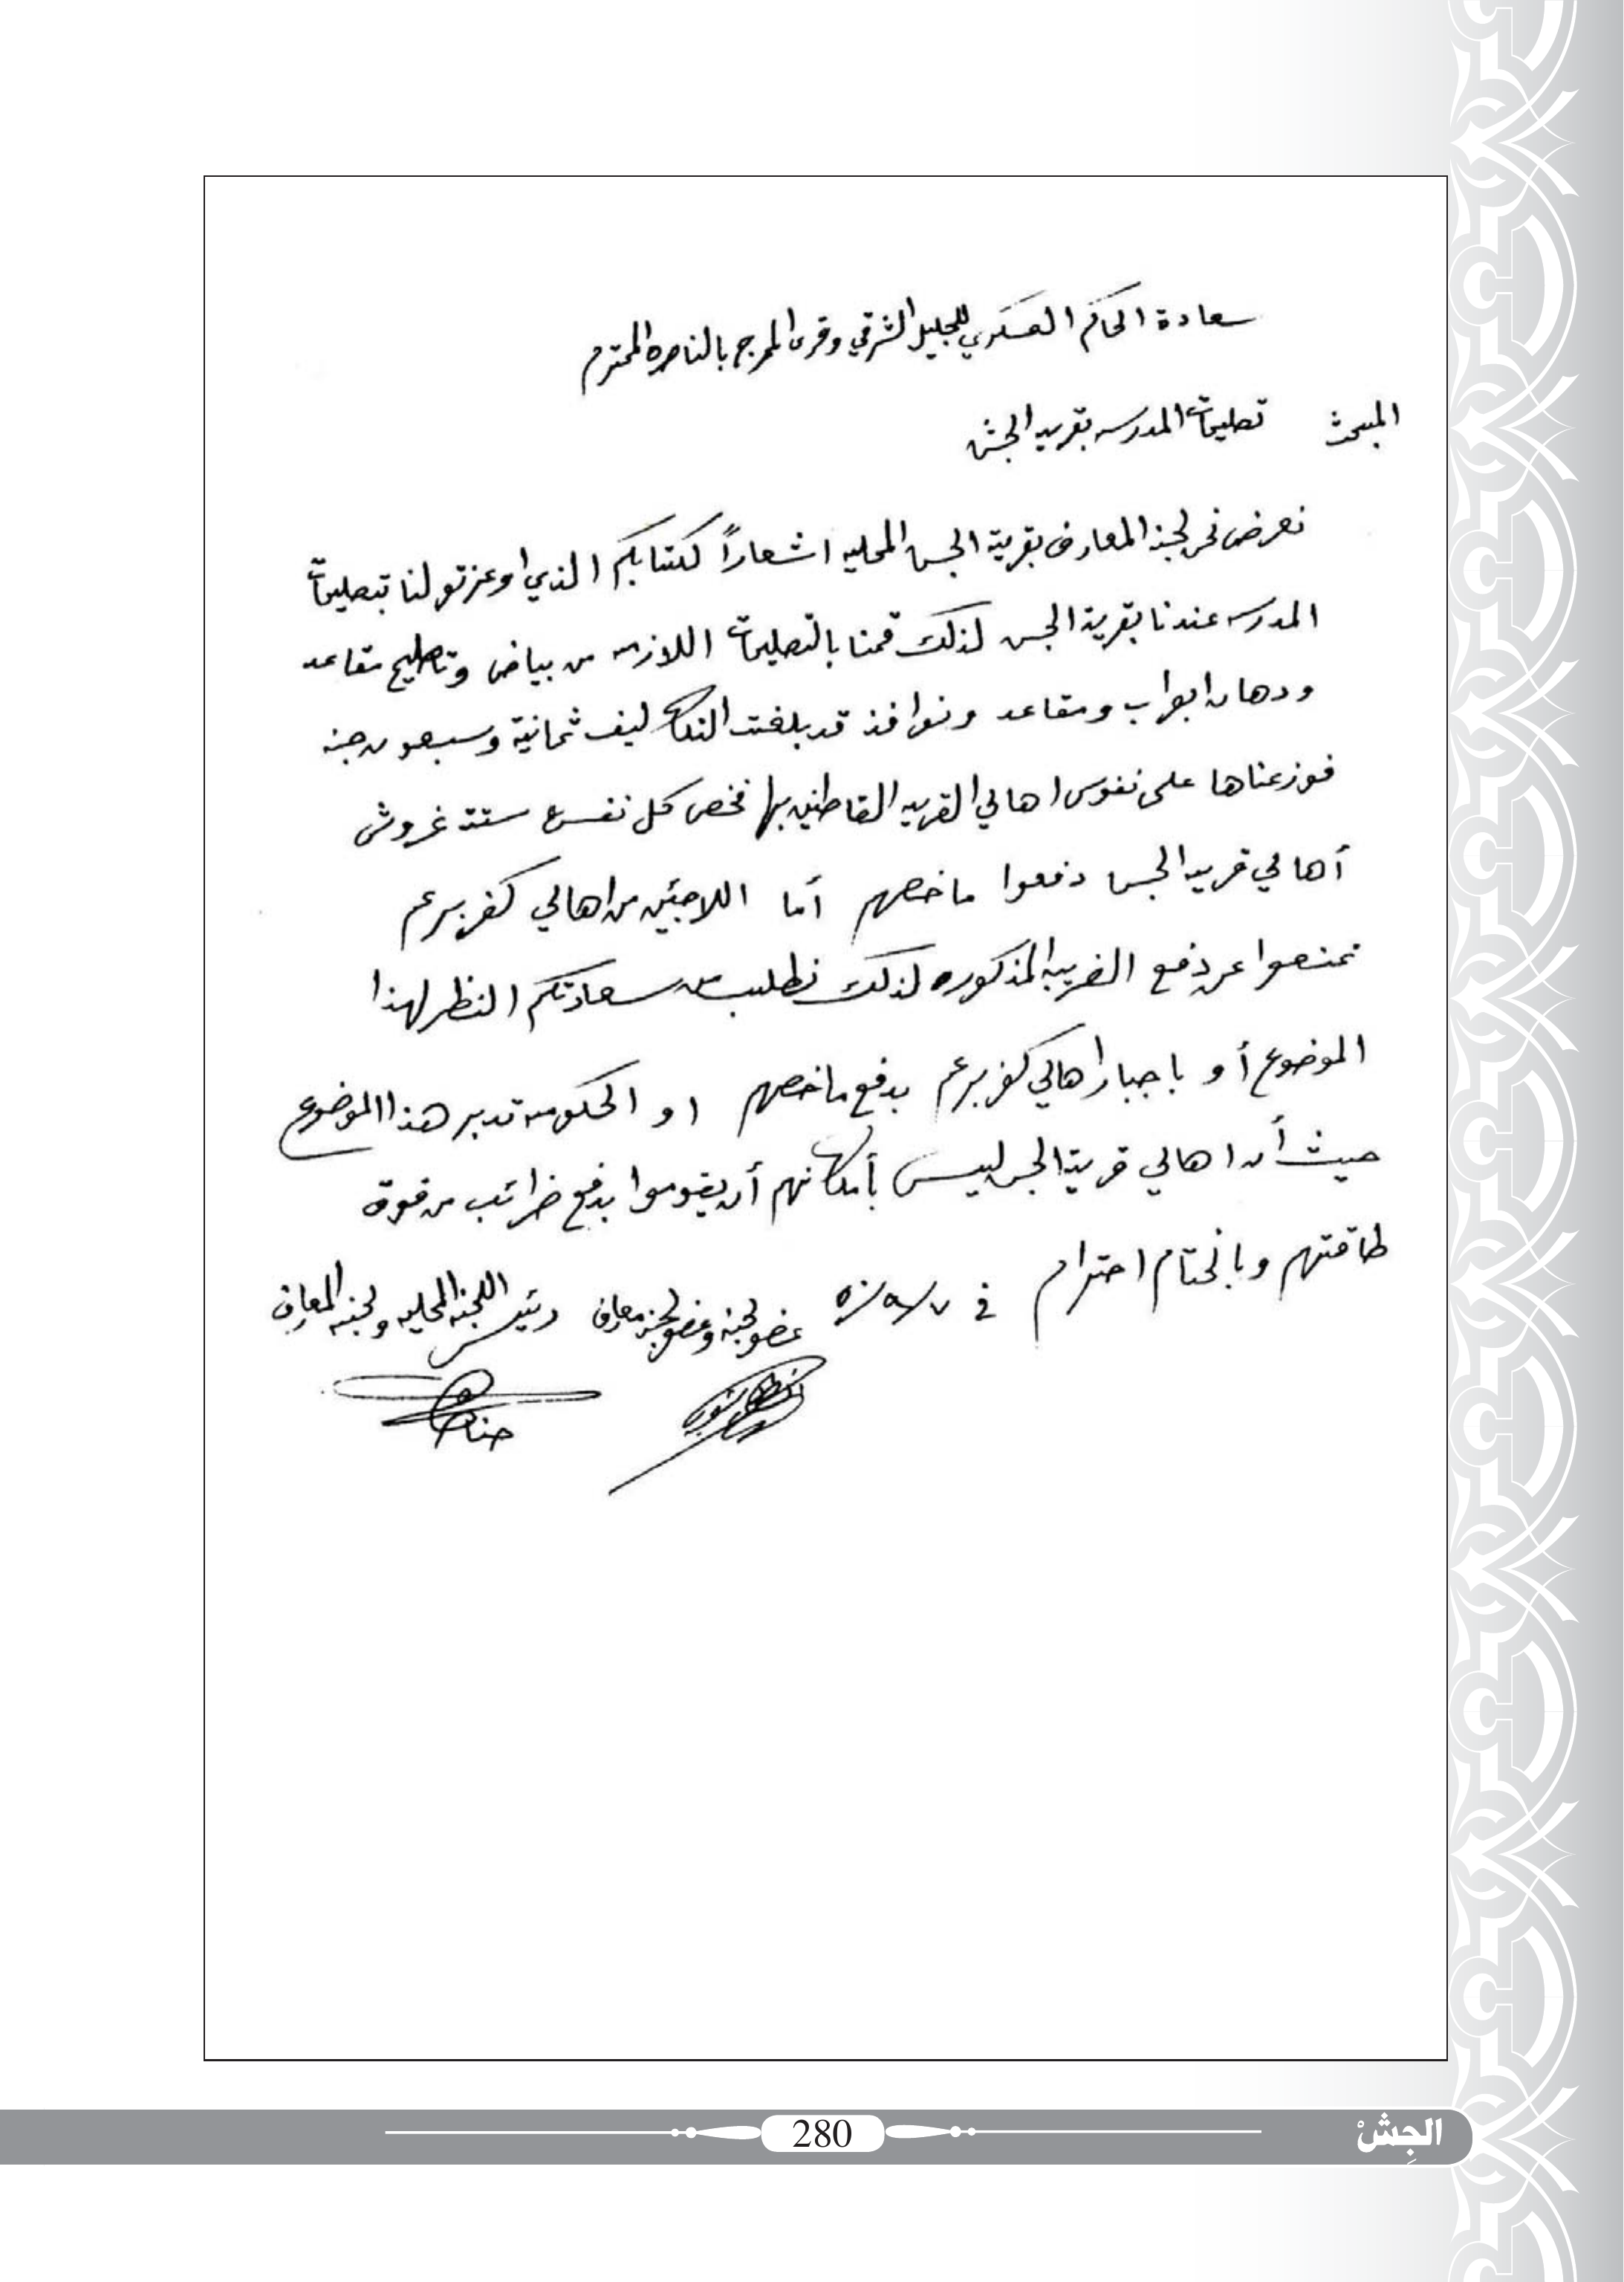 سعادة الحاكم العسكري للجليل الشرقي وقرى المرج بالناصره المحترم
المبحث تصليحات المدرسه بقريه الجش
نعرض نحن لجنة المعارف بقرية الجس المحليه اشعاراً لكتابكم الذي اوعزتو لنا بتصليحات
المدرسه عندنا بقرية الجس لذلك قمنا بالتصليحات اللازمه من بياض وتصليح مقاعد
ودهان ابواب ومقاعد ونوافذ قد بلغت التكاليف ثمانية وسبعون جنه
فوزعناها على نفوس اهالي القريه القاطنين بها فخص كل نفس ستة غروش
أهالي قريه الجس دفعوا ما خصهم أما اللاجئين من اهالي كفر برعم
تمنعوا عن دفع الضريبه المذكوره لذلك نطلب من سعادتكم النظر لهذا
الموضوع أو باجبار اهالي كفر برعم بدفع ما خصهم او الحكومه تدبر هذا الموضوع
حيث أن اهالي قرية الجس ليس بأمكانهم أن يقوموا بدفع ضرائب من فوق
طاقتهم وبالختام احترام في ٥٠/٩/٧ عضو لجنة وعضو لجنة معارف رئيس اللجنه المحليه ولجنه المعارف
حنا
280
الجِشْ